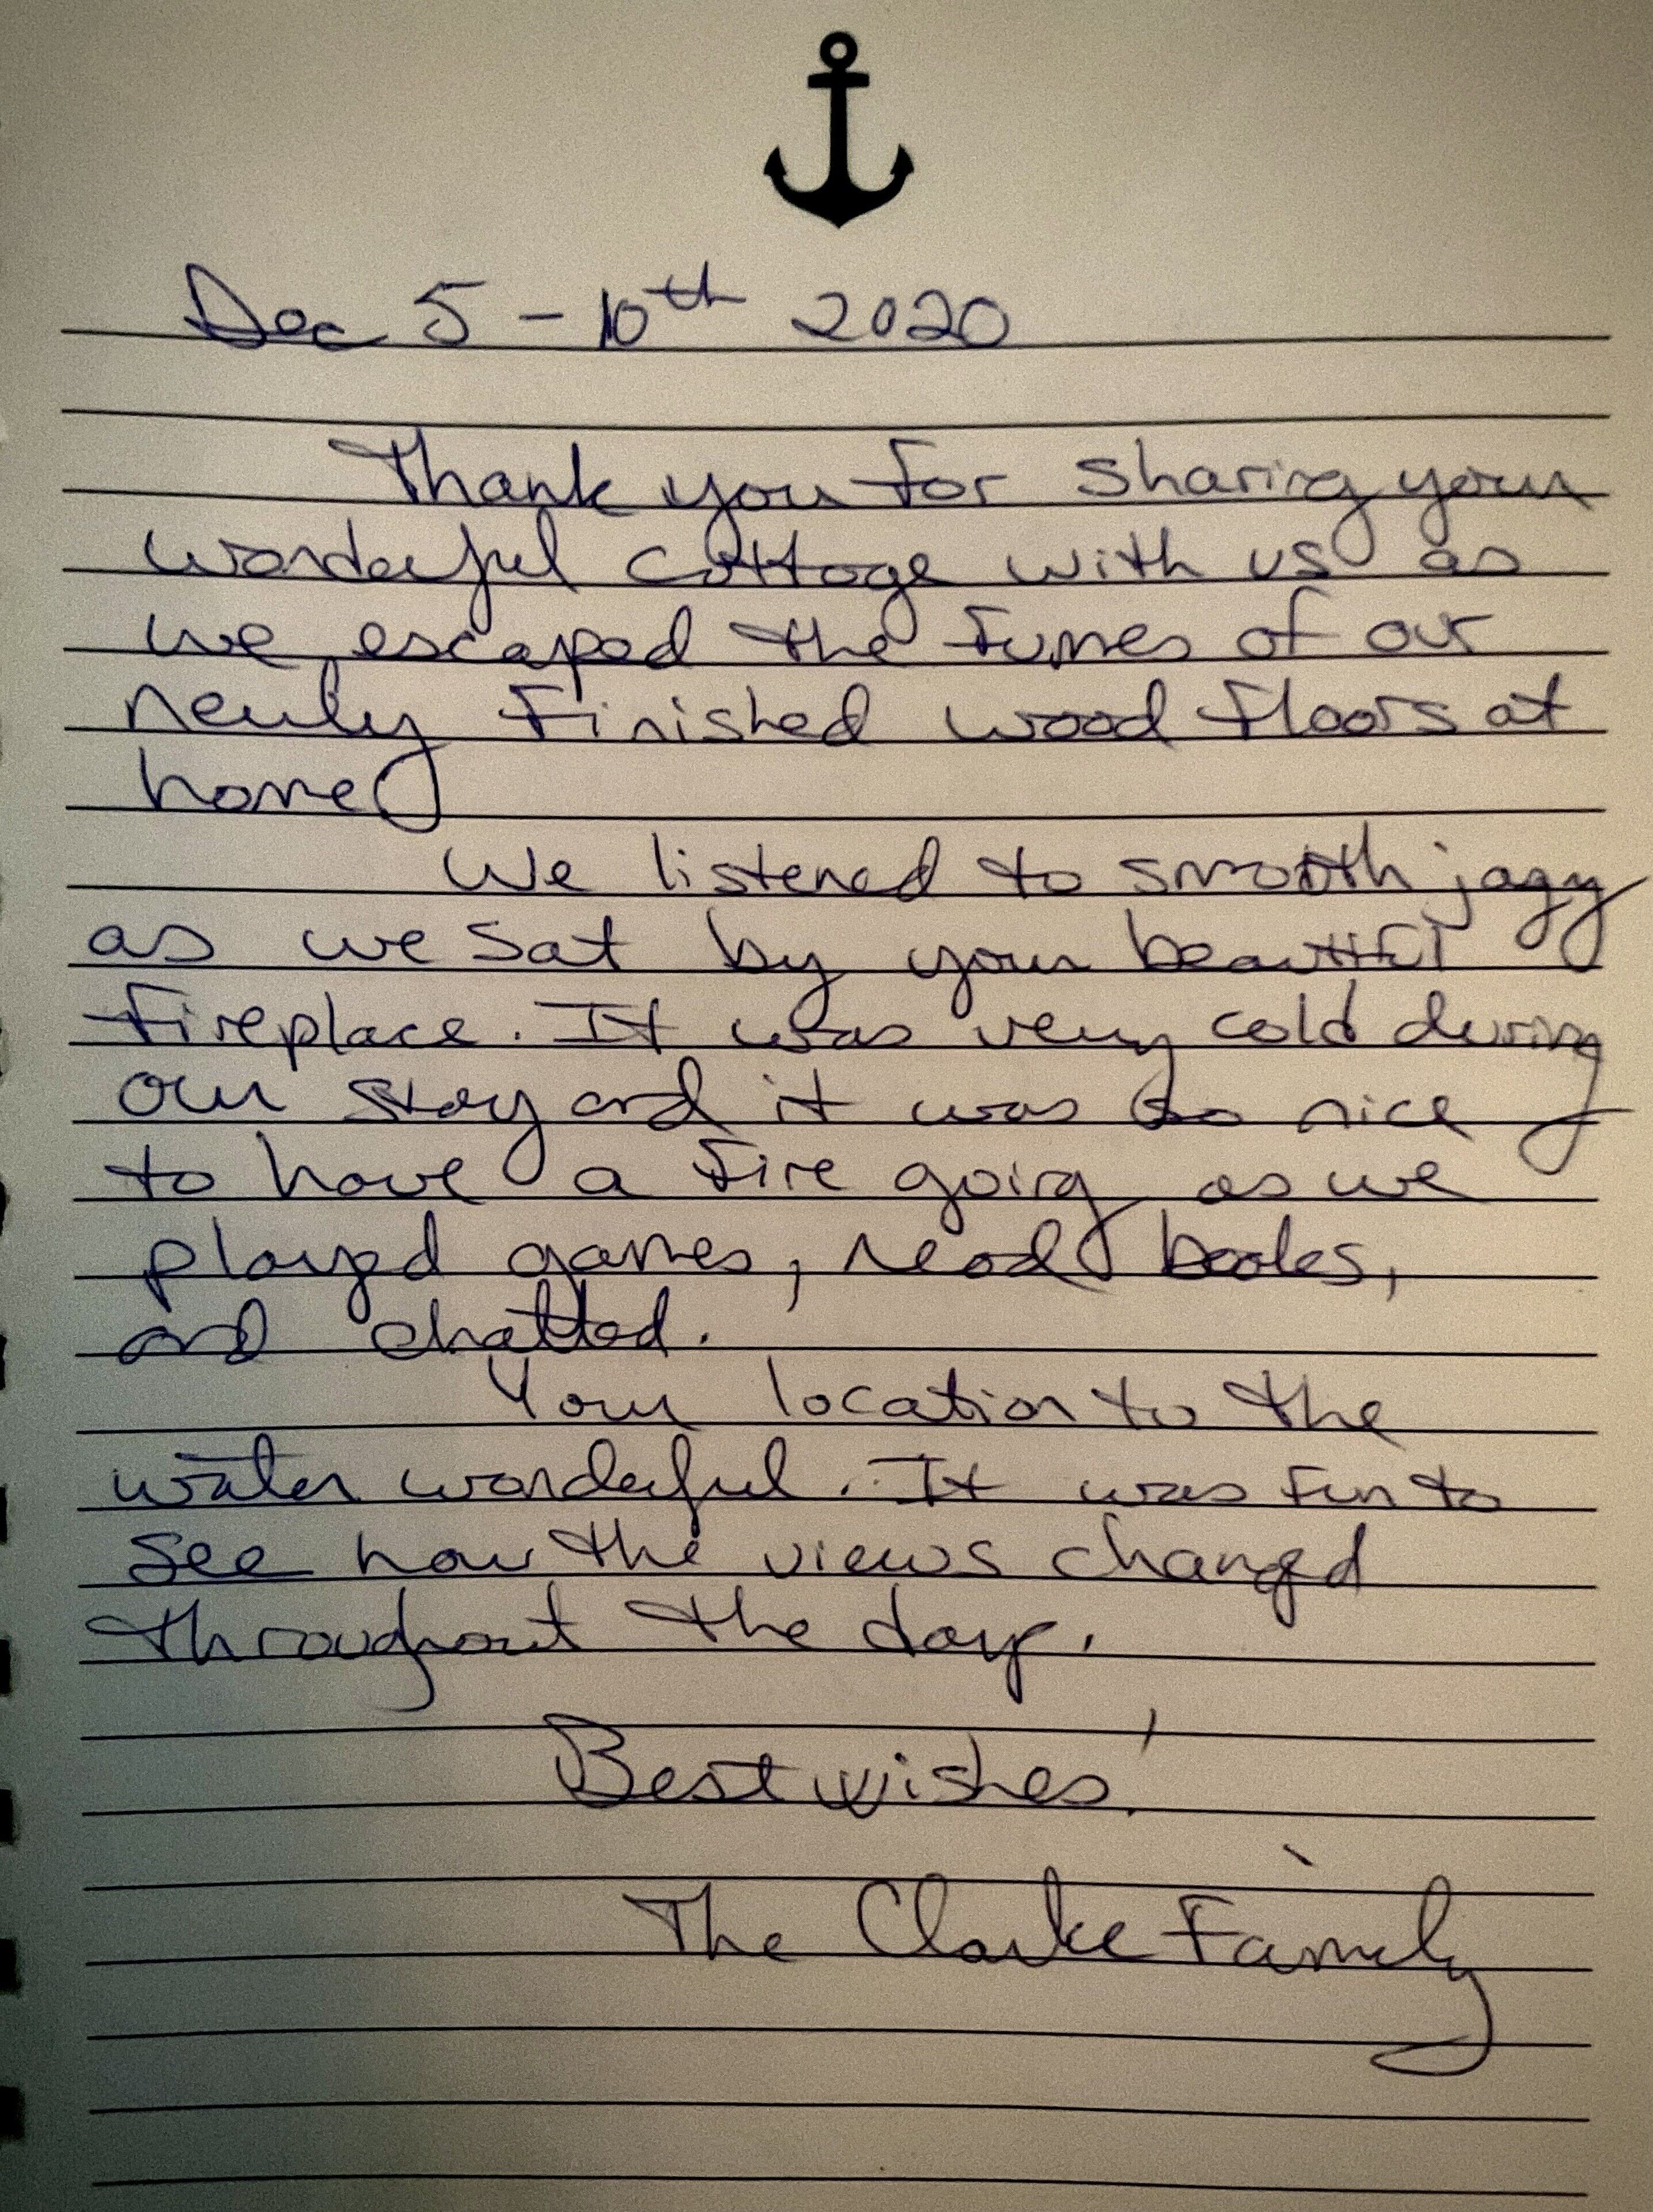 Dec 5 - 10th 2020
Thank you for sharing your
wonderful cottage with us as
we escaped the fumes of our
newly finished wood floors at
home
We listened to smooth jazz
as we sat by your beautiful
fireplace. It was very cold during
our stay and it was so nice
to have a fire going as we
played games, read books,
and chatted.
Your location to the
water wonderful. It was fun to
see how the views changed
throughout the day.
Best wishes!
The Clarke Family